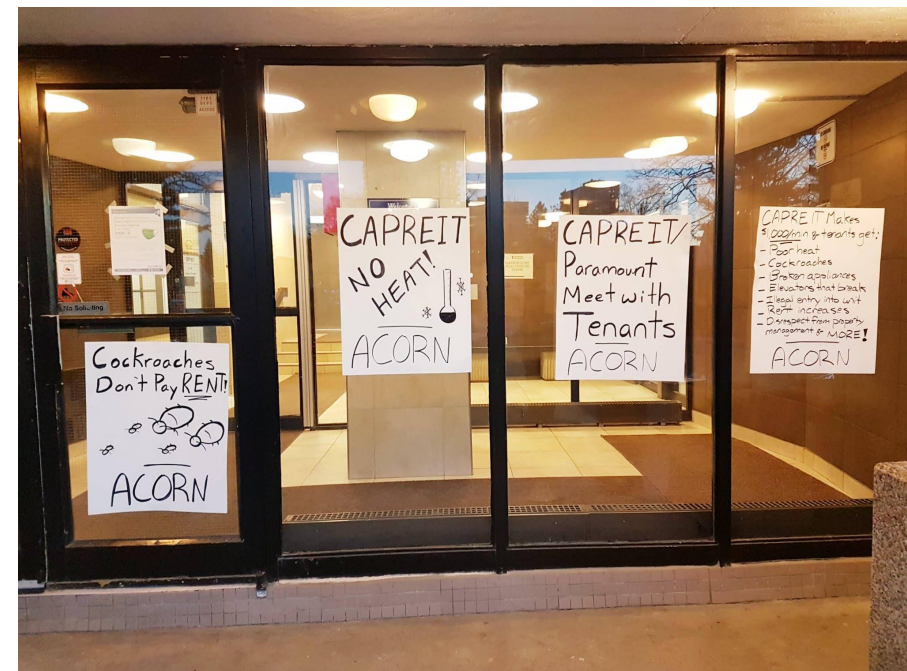 No Soliciting
Cockroaches
Don't Pay RENT!
ACORN
CAPREIT
NO
HEAT!
ACORN
CAPREIT/
Paramount
Meet with
Tenants
ACORN
CAPREIT Makes
& tenants get:
- Poor heat
- Cockroaches
- Broken appliances
- Elevators that break
- Illegal entry into unit
- Rent increases
- Disrespect from property
management & MORE!
ACORN
PROTECTED